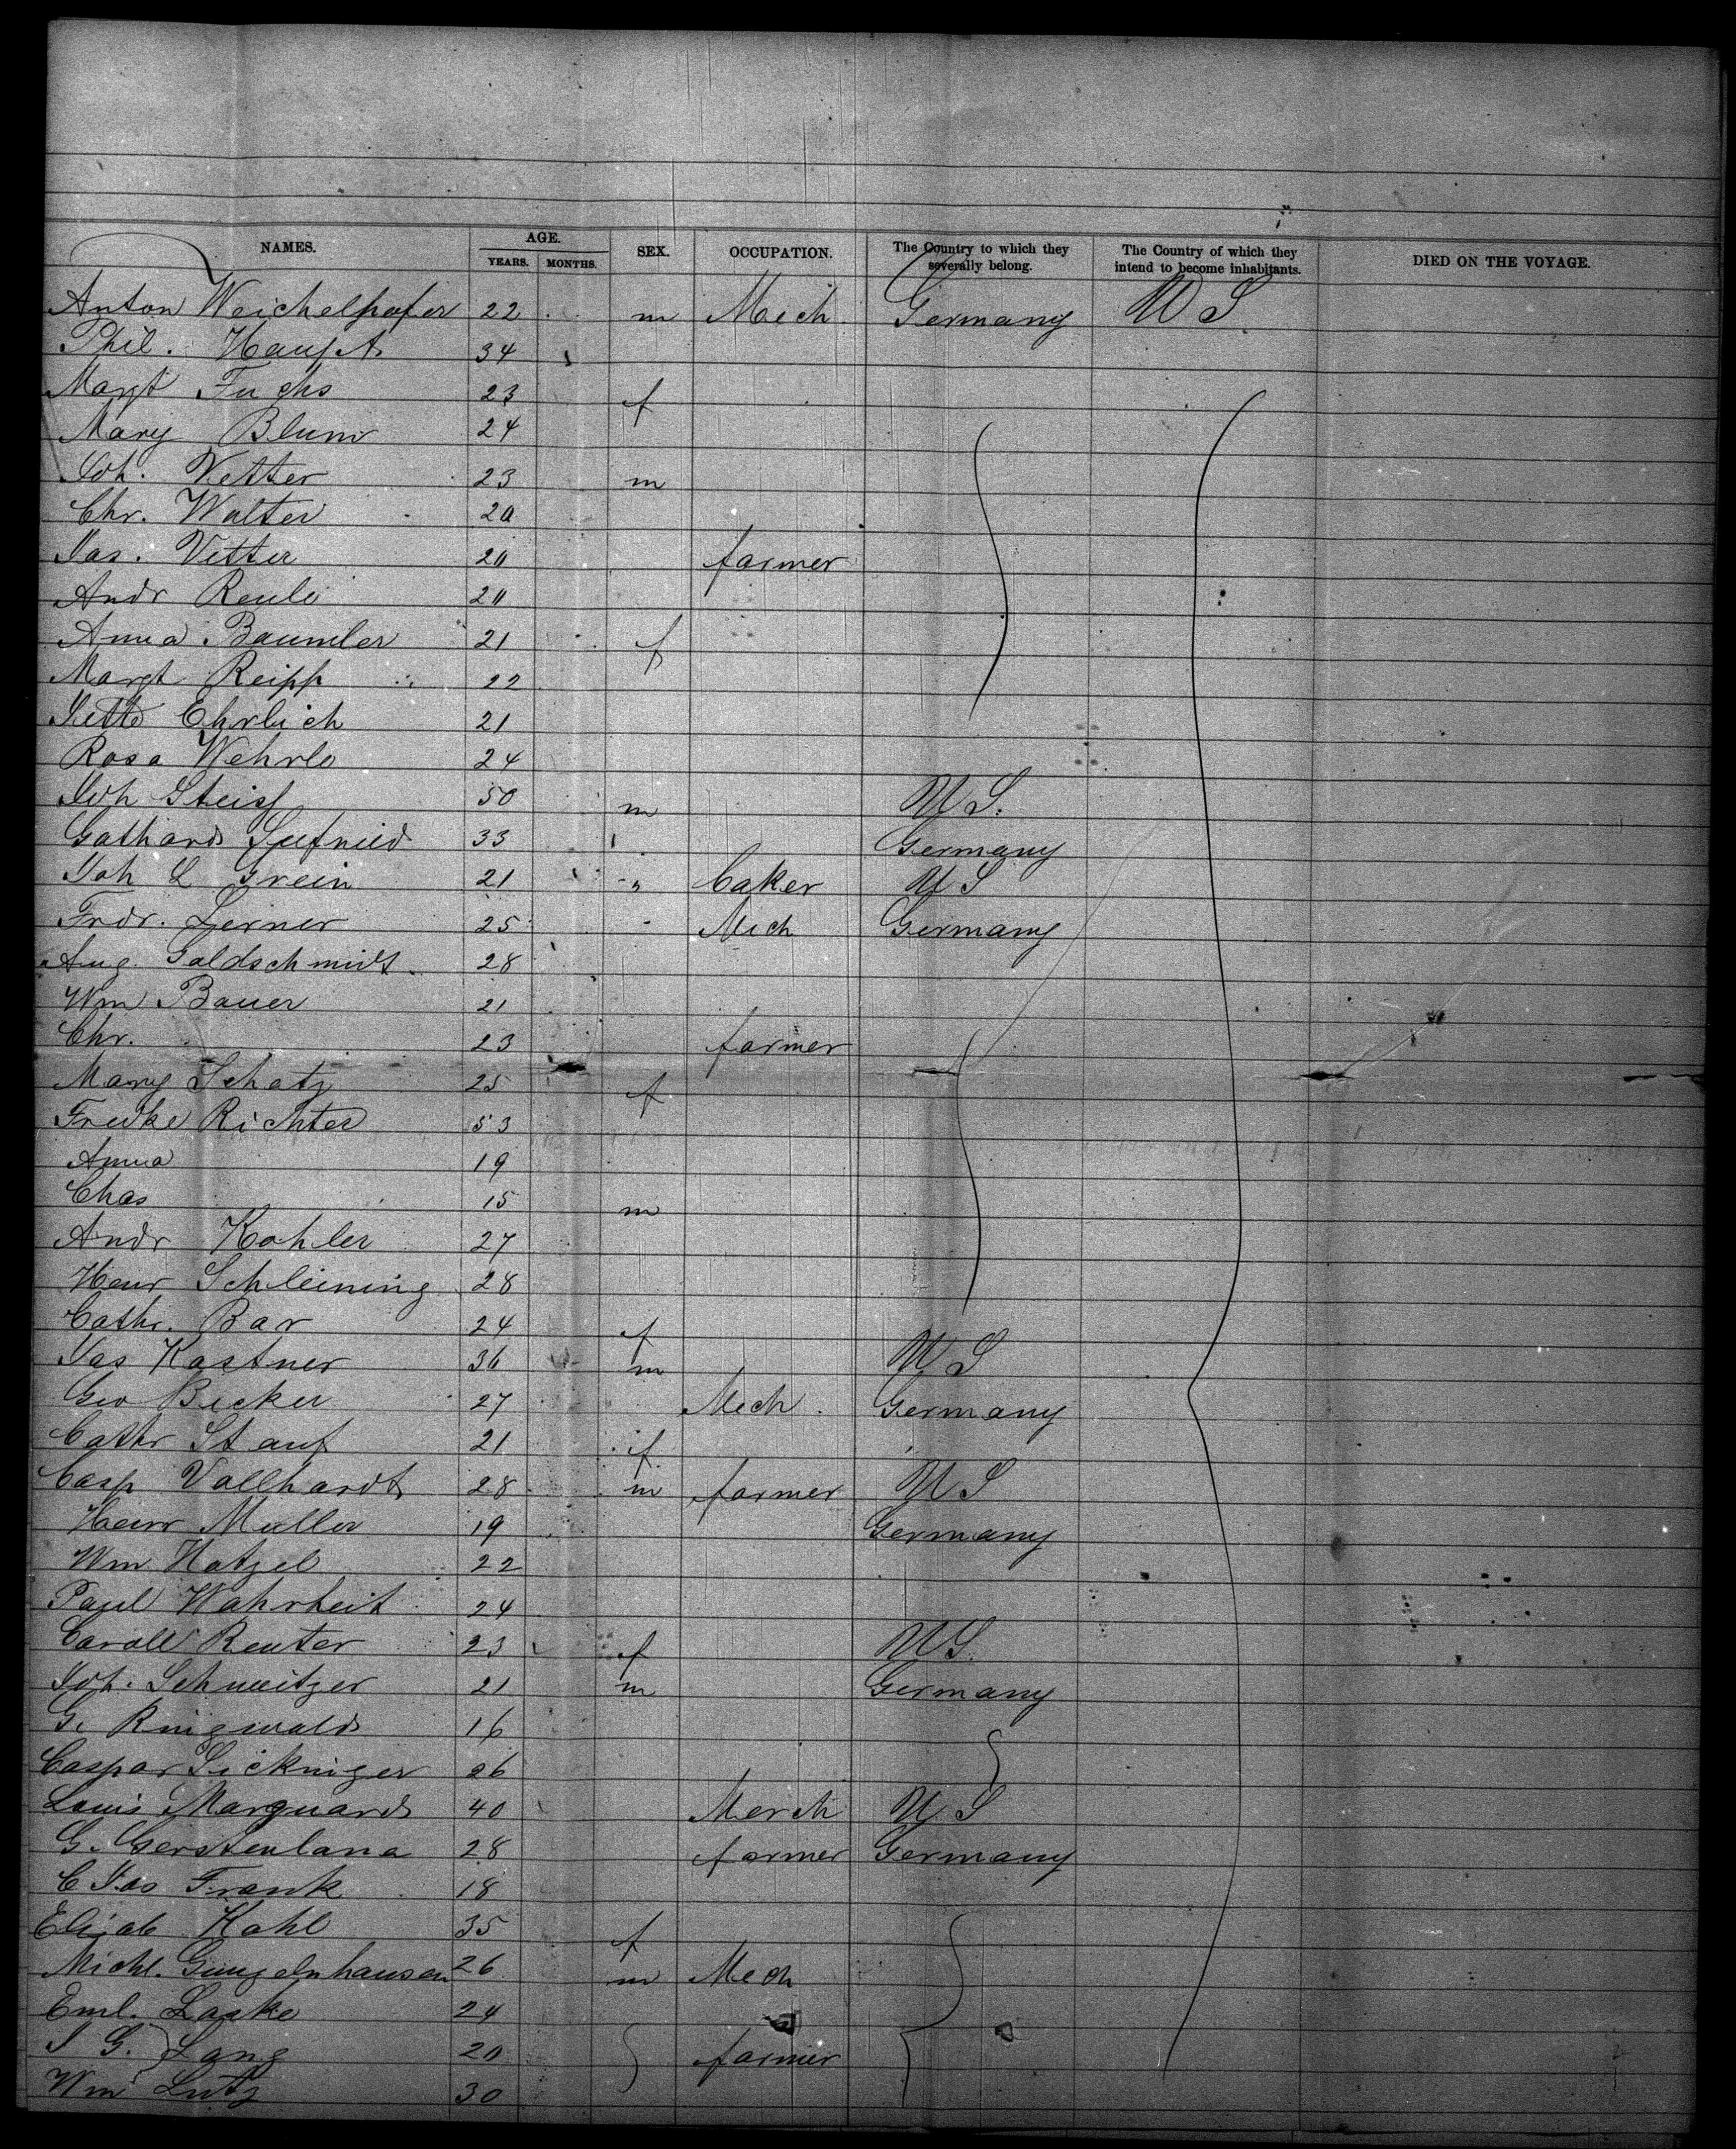 NAMES. AGE. SEX. OCCUPATION. The Country to which they severally belong. The Country of which they intend to become inhabitants. DIED ON THE VOYAGE.
YEARS. MONTHS.
Anton Weichelhafer 22 m Mech Germany U S
Phil. Haupt 34
Margt Fuchs 23 f
Mary Blum 24
Joh. Vetter 23 m
Chr. Walter 20
Jas. Vetter 20 farmer
Andr Reule 20
Anna Baumler 21 f
Margt Reipp 22
Jette Ehrlich 21
Rosa Wehrle 24
Joh Steiss 50 m U S.
Gathard Seefried 33 Germany
Joh L Grein 21 " baker U S
Fredr. Lerner 25 - Mech Germany
Aug. Goldschmidt 28
Wm Bauer 21
Chr. 23 farmer
Mary Schatz 25 f
Fredke Richter 53
Anna 19
Chas 15 m
Andr Kohler 27
Henr Schleining 28
Cathr. Bar 24 f
Jas Kastner 36 m U S
Geo Becker 27 Mech. Germany
Cathr Stauf 21 f
Casp Vollhardt 28 m farmer U S
Henr Muller 19 Germany
Wm Hatzel 22
Paul Wahrheit 24
Caroll Reuter 23 f U S.
Joh. Schweitzer 21 m Germany
G. Ringwald 16
Caspar Sickniger 26
Louis Marquard 40 Merch U S
G. Gerstenlana 28 farmer Germany
C Jas Frank 18
Elizab Hahl 35 f
Michl. Gungelnhausen 26 m Mech
Eml. Laske 24
J G. Lang 20 farmer
Wm Lutz 30